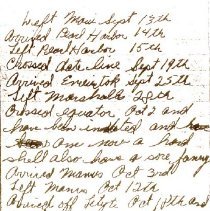 Left Maui Sept 13th
Arrived Pearl Harbor 14th
Left Pearl Harbor 15th
Crossed date line Sept 19th
Arrived Eniwetok Sept 25th
Left Marshalls 28th
Crossed equator Oct 2 and
have been and
Am now a hard
shell also have a sore fanny
Arrived Manus Oct 3rd
Left Manus Oct 12th
Arrived off Leyte Oct 18th and